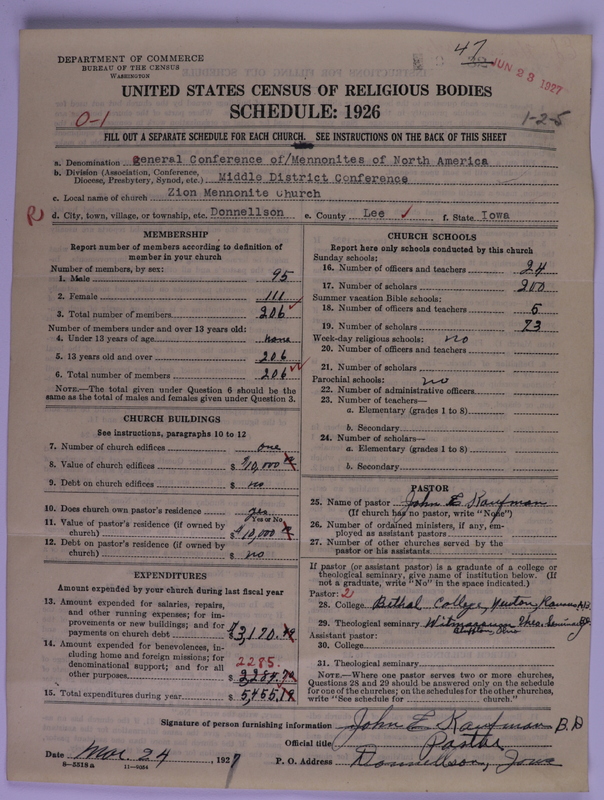 47
JUN 23 1927
DEPARTMENT OF COMMERCE
BUREAU OF THE CENSUS
WASHINGTON
UNITED STATES CENSUS OF RELIGIOUS BODIES
SCHEDULE: 1926
0-1
1-2-5
FILL OUT A SEPARATE SCHEDULE FOR EACH CHURCH. SEE INSTRUCTIONS ON THE BACK OF THIS SHEET
a. Denomination General Conference of/Mennonites of North America
b. Division (Association, Conference, Diocese, Presbytery, Synod, etc.) Middle District Conference
c. Local name of church Zion Mennonite Church
R d. City, town, village, or township, etc. Donnellson e. County Lee f. State Iowa
MEMBERSHIP
Report number of members according to definition of
member in your church
Number of members, by sex:
1. Male 95
2. Female 111
3. Total number of members 206
Number of members under and over 13 years old:
4. Under 13 years of age none
5. 13 years old and over 206
6. Total number of members 206
NOTE.—The total given under Question 6 should be the
same as the total of males and females given under Question 3.
CHURCH BUILDINGS
See instructions, paragraphs 10 to 12
7. Number of church edifices one
8. Value of church edifices $10,000
9. Debt on church edifices $ no
10. Does church own pastor's residence yes
Yes or No
11. Value of pastor's residence (if owned by
church) $10,000
12. Debt on pastor's residence (if owned by
church) $ no
EXPENDITURES
Amount expended by your church during last fiscal year
13. Amount expended for salaries, repairs,
and other running expenses; for im-
provements or new buildings; and for
payments on church debt $3,170
14. Amount expended for benevolences, in-
cluding home and foreign missions; for
denominational support; and for all
2285.
other purposes $2,284.70
15. Total expenditures during year $5,455.19
CHURCH SCHOOLS
Report here only schools conducted by this church
Sunday schools:
16. Number of officers and teachers 24
17. Number of scholars 200
Summer vacation Bible schools:
18. Number of officers and teachers 5
19. Number of scholars 73
Week-day religious schools: no
20. Number of officers and teachers
21. Number of scholars
Parochial schools: no
22. Number of administrative officers
23. Number of teachers—
a. Elementary (grades 1 to 8)
b. Secondary
24. Number of scholars—
a. Elementary (grades 1 to 8)
b. Secondary
PASTOR
25. Name of pastor John E Kaufman
(If church has no pastor, write "None")
26. Number of ordained ministers, if any, em-
ployed as assistant pastors
27. Number of other churches served by the
pastor or his assistants
If pastor (or assistant pastor) is a graduate of a college or
theological seminary, give name of institution below. (If
not a graduate, write "No" in the space indicated.)
Pastor: 2
28. College Bethel College, Newton, Kansas A.B.
29. Theological seminary Witmarsum Theo. Seminary B.D.
Bluffton, Ohio
Assistant pastor:
30. College
31. Theological seminary
NOTE.—Where one pastor serves two or more churches,
Questions 28 and 29 should be answered only on the schedule
for one of the churches; on the schedules for the other churches,
write "See schedule for church."
Signature of person furnishing information John E Kaufman B.D
Official title Pastor
Date Mar 24 1927 P. O. Address Donnellson, Iowa
8-5518a 11-9054